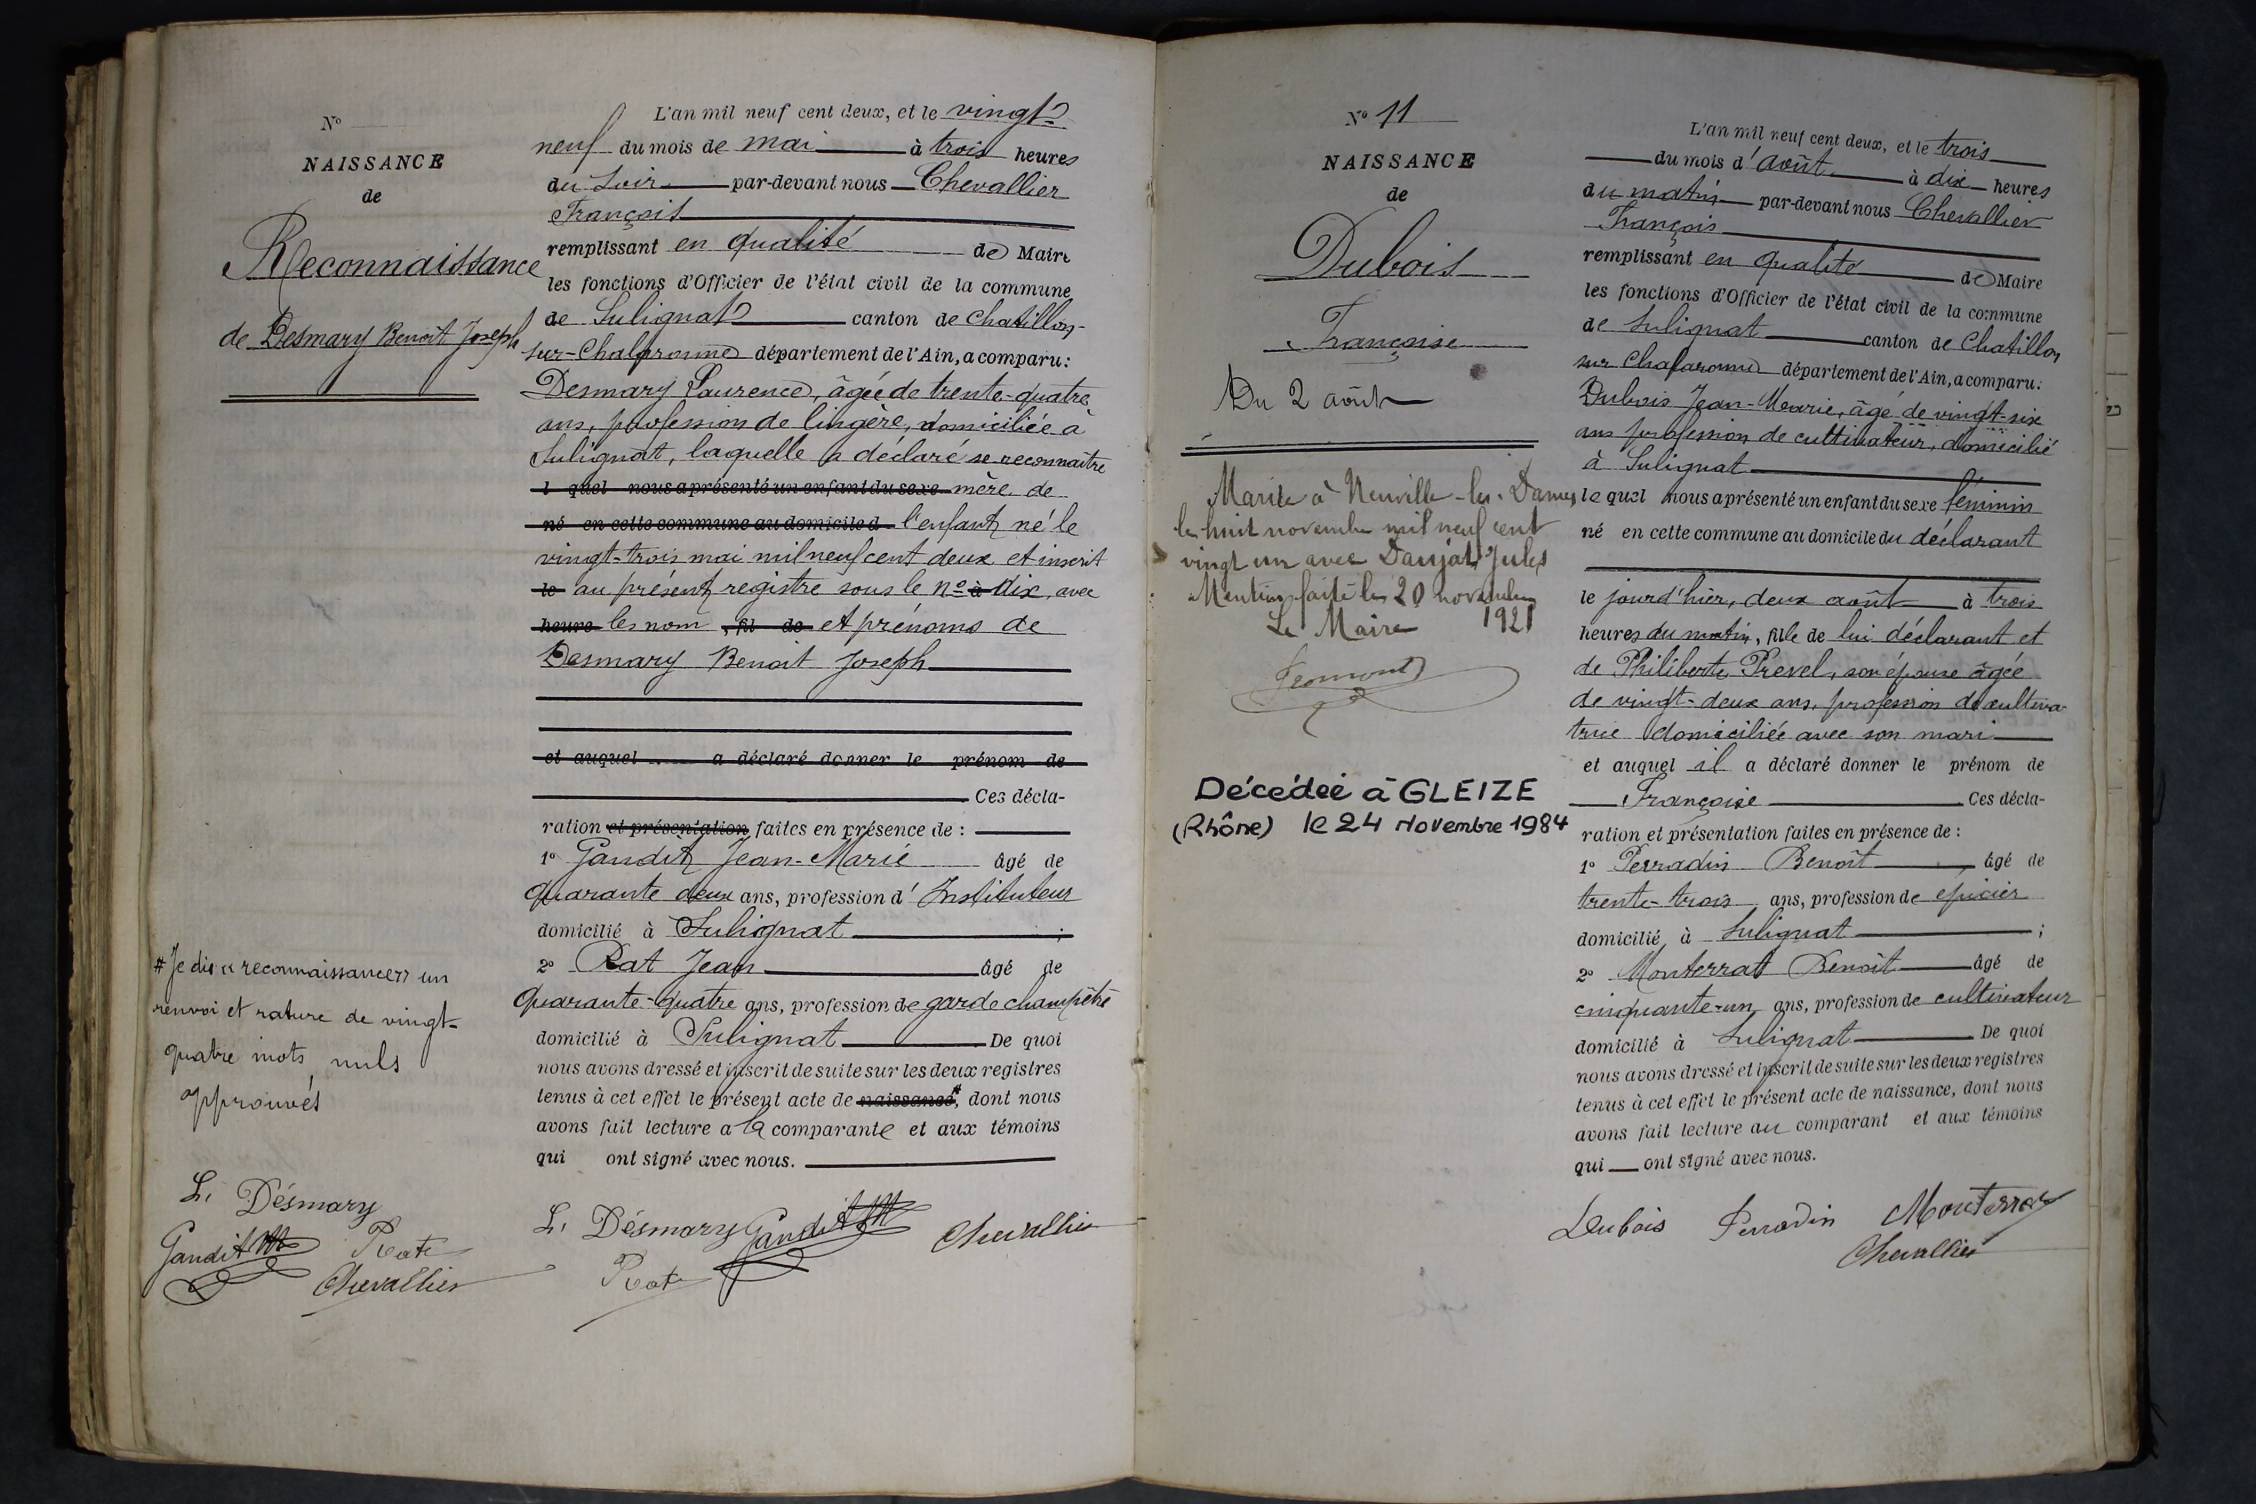 N°
NAISSANCE
de
Reconnaissance
de Desmary Benoit Joseph
L'an mil neuf cent deux, et le vingt-
neuf du mois de mai à trois heures
du soir par-devant nous Chevallier
François
remplissant en qualité de Maire
les fonctions d'Officier de l'état civil de la commune
de Sulignat canton de Chatillon-
sur-Chalaronne département de l'Ain, a comparu:
Desmary Laurence, âgée de trente-quatre
ans, profession de lingère, domiciliée à
Sulignat, laquelle a déclaré se reconnaître
l quel nous a présenté un enfant du sexe mère de
né en cette commune au domicile d l'enfant né le
vingt-trois mai mil neuf cent deux et inscrit
le au présent registre sous le n° à dix, avec
heure les nom , fil de et prénoms de
Desmary Benoit Joseph
et auquel a déclaré donner le prénom de
Ces décla-
ration et présentation faites en présence de :
1° Gandit Jean-Marie âgé de
quarante deux ans, profession d'Instituteur
domicilié à Sulignat ;
2° Rat Jean âgé de
quarante-quatre ans, profession de garde champêtre
domicilié à Sulignat De quoi
nous avons dressé et inscrit de suite sur les deux registres
tenus à cet effet le présent acte de naissance#, dont nous
avons fait lecture a la comparante et aux témoins
qui ont signé avec nous.
# Je dis « reconnaissance » un
renvoi et rature de vingt-
quatre mots nuls
approuvés
L. Désmary
Gandit Rat
Chevallier
L. Désmary Gandit Chevallier
Rat
N° 11
NAISSANCE
de
Dubois
Françoise
Du 2 août
Mariée à Neuville-les-Dames
le huit novembre mil neuf cent
vingt un avec Daujat Jules
Mention faite le 20 novembre
1921
Le Maire
Décédée à GLEIZE
(Rhône) le 24 Novembre 1984
L'an mil neuf cent deux, et le trois
du mois d'août à dix heures
du matin par-devant nous Chevallier
François
remplissant en qualité de Maire
les fonctions d'Officier de l'état civil de la commune
de Sulignat canton de Chatillon
sur Chalaronne département de l'Ain, a comparu:
Dubois Jean-Marie, âgé de vingt-six
ans profession de cultivateur, domicilié
à Sulignat
le quel nous a présenté un enfant du sexe féminin
né en cette commune au domicile du déclarant
le jourd'hier, deux août à trois
heures du matin, fille de lui déclarant et
de Philiberte Prevel, son épouse âgée
de vingt-deux ans, profession de cultiva-
trice domiciliée avec son mari
et auquel il a déclaré donner le prénom de
Françoise Ces décla-
ration et présentation faites en présence de :
1° Perradin Benoît âgé de
trente-trois ans, profession de épicier
domicilié à Sulignat ;
2° Monterrat Benoit âgé de
cinquante-un ans, profession de cultivateur
domicilié à Sulignat De quoi
nous avons dressé et inscrit de suite sur les deux registres
tenus à cet effet le présent acte de naissance, dont nous
avons fait lecture au comparant et aux témoins
qui ont signé avec nous.
Dubois Perradin Monterrat
Chevallier